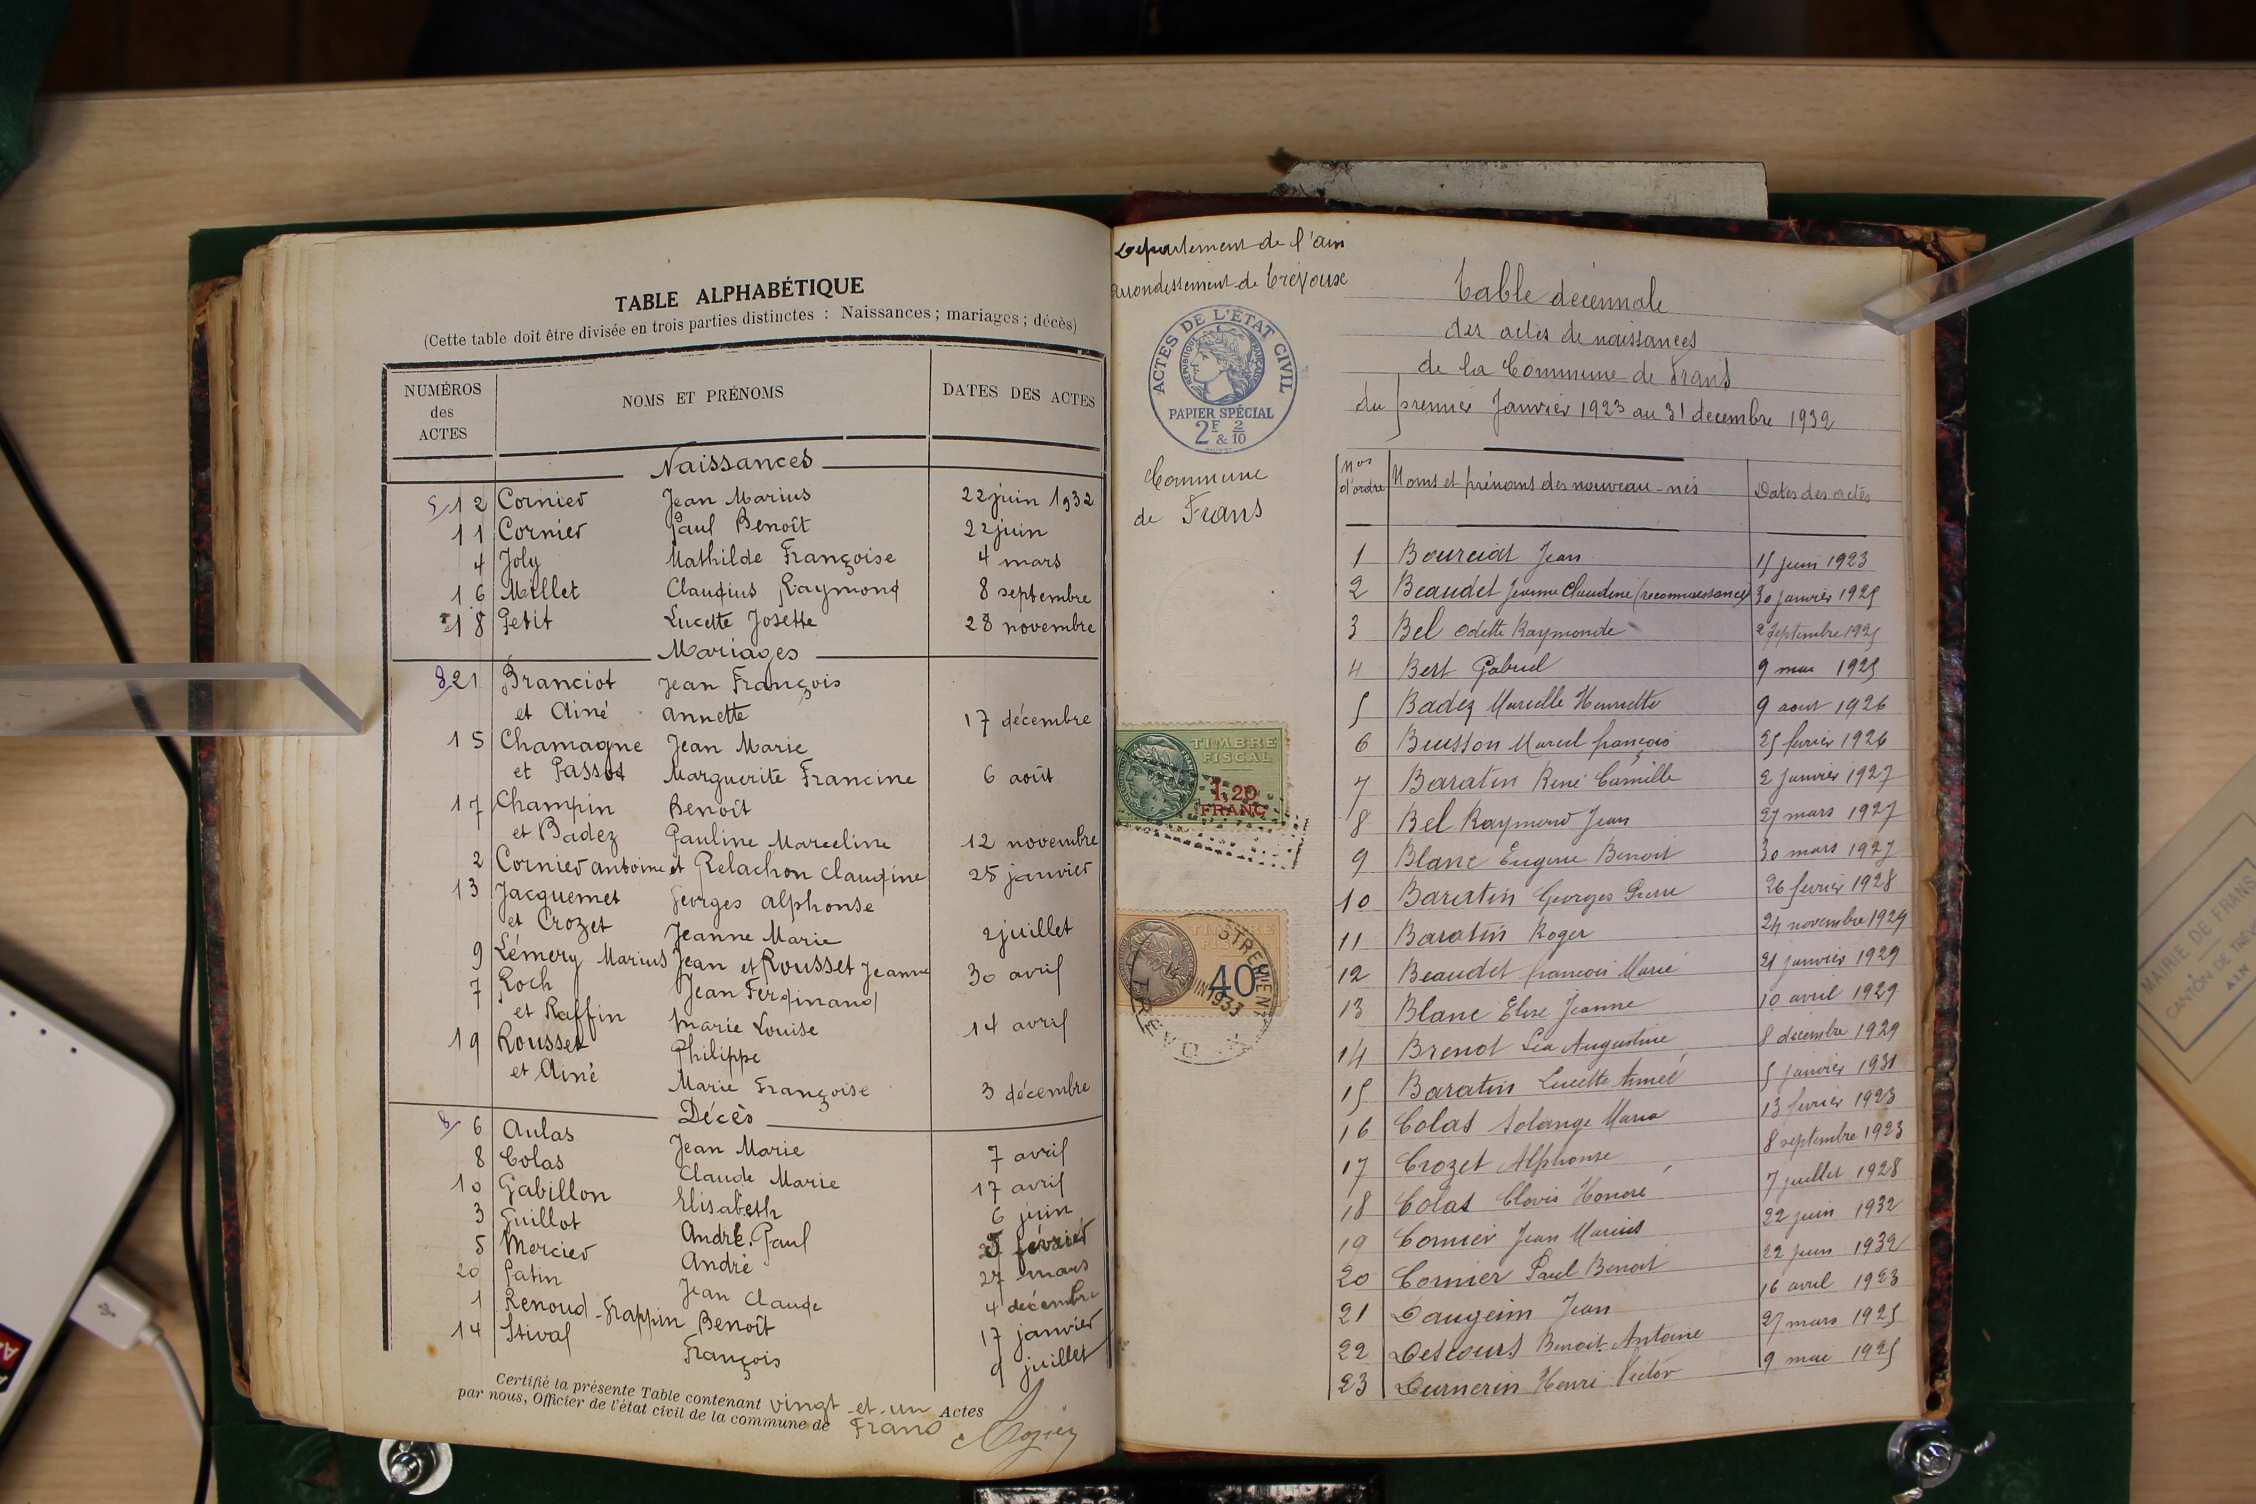 TABLE ALPHABÉTIQUE
(Cette table doit être divisée en trois parties distinctes : Naissances ; mariages ; décès)
NUMÉROS des ACTES NOMS ET PRÉNOMS DATES DES ACTES
Naissances
5 12 Cornier Jean Marius 22 juin 1932
11 Cornier Paul Benoît 22 juin
4 Joly Mathilde Françoise 4 mars
16 Millet Claudius Raymond 8 septembre
18 Petit Lucette Josette 28 novembre
Mariages
8 21 Branciot Jean François
et Ainé Annette 17 décembre
15 Chamagne Jean Marie
et Passot Marguerite Francine 6 août
17 Champin Benoît
et Badez Pauline Marceline 12 novembre
2 Cornier Antoine et Relachon Claudine 25 janvier
13 Jacquemet Georges Alphonse
et Crozet Jeanne Marie 2 juillet
9 Lémery Marius Jean et Rousset Jeanne 30 avril
7 Roch Jean Ferdinand
et Raffin Marie Louise 14 avril
19 Rousset Philippe
et Ainé Marie Françoise 3 décembre
Décès
8 6 Aulas Jean Marie 7 avril
8 Colas Claude Marie 17 avril
10 Gabillon Elisabeth 6 juin
3 Guillot André Paul février
5 Mercier André 27 mars
20 Patin Jean Claude 4 décembre
1 Renoud-Grappin Benoît 17 janvier
14 Stival François 9 juillet
Certifié la présente Table contenant vingt-et-un Actes
par nous, Officier de l'état civil de la commune de Frans
Departement de l'ain
arrondissement de Trévoux
ACTES DE L'ÉTAT CIVIL
RÉPUBLIQUE FRANÇAISE
PAPIER SPÉCIAL
2F 2/10
&
Commune
de Frans
TIMBRE
FISCAL
1,20
FRANC
TIMBRE
40
JUIN 1933
TRÉVOUX
Table décennale
des actes de naissances
de la Commune de Frans
du premier Janvier 1923 au 31 decembre 1932
Nos d'ordre Noms et prénoms des nouveau-nés Dates des actes
1 Bourciat Jean 15 juin 1923
2 Beaudet Jeanne Claudine (reconnaissance) 30 janvier 1925
3 Bel Odette Raymonde 2 septembre 1925
4 Bert Gabriel 9 mai 1925
5 Badez Marcelle Henriette 9 aout 1926
6 Buisson Marcel françois 25 fevrier 1926
7 Baratin René Camille 2 janvier 1927
8 Bel Raymond Jean 27 mars 1927
9 Blanc Eugene Benoit 30 mars 1927
10 Baratin Georges Pierre 26 fevrier 1928
11 Baratin Roger 24 novembre 1929
12 Beaudet francois Marie 21 janvier 1929
13 Blanc Elise Jeanne 10 avril 1929
14 Brenot Léa Augustine 8 decembre 1929
15 Baratin Lucette Aimée 5 janvier 1931
16 Colas Solange Maria 13 fevrier 1923
17 Crozet Alphonse 8 septembre 1923
18 Colas Clovis Honoré 7 juillet 1928
19 Cornier Jean Marius 22 juin 1932
20 Cornier Paul Benoit 22 juin 1932
21 Daugeim Jean 16 avril 1923
22 Descours Benoit-Antoine 27 mars 1925
23 Durnerin Henri Victor 9 mai 1925
MAIRIE DE FRANS
CANTON DE TRÉVOUX
AIN